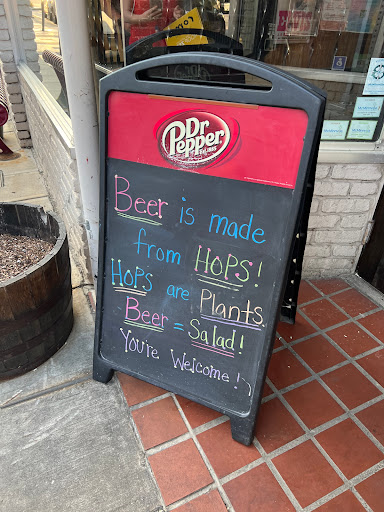 Dr
Pepper
Beer is made
from HOPS!
HOPS are Plants.
Beer = Salad!
You're Welcome!